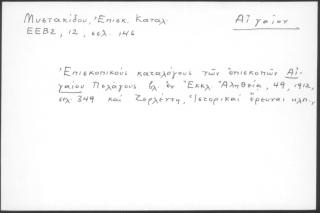 Μυστακίδου, Ἐπισκ. Καταλ. Αἰγαίου
ΕΕΒΣ, 12, σελ. 146
Ἐπισκοπικοὺς καταλόγους τῶν ἐπισκοπῶν Αἰ-
γαίου Πελάγους βλ. ἐν Ἐκκλ. Ἀληθείᾳ, 49, 1912,
σελ. 349 καὶ Ζερλέντη, Ἱστορικαὶ ἔρευναι κλπ.,